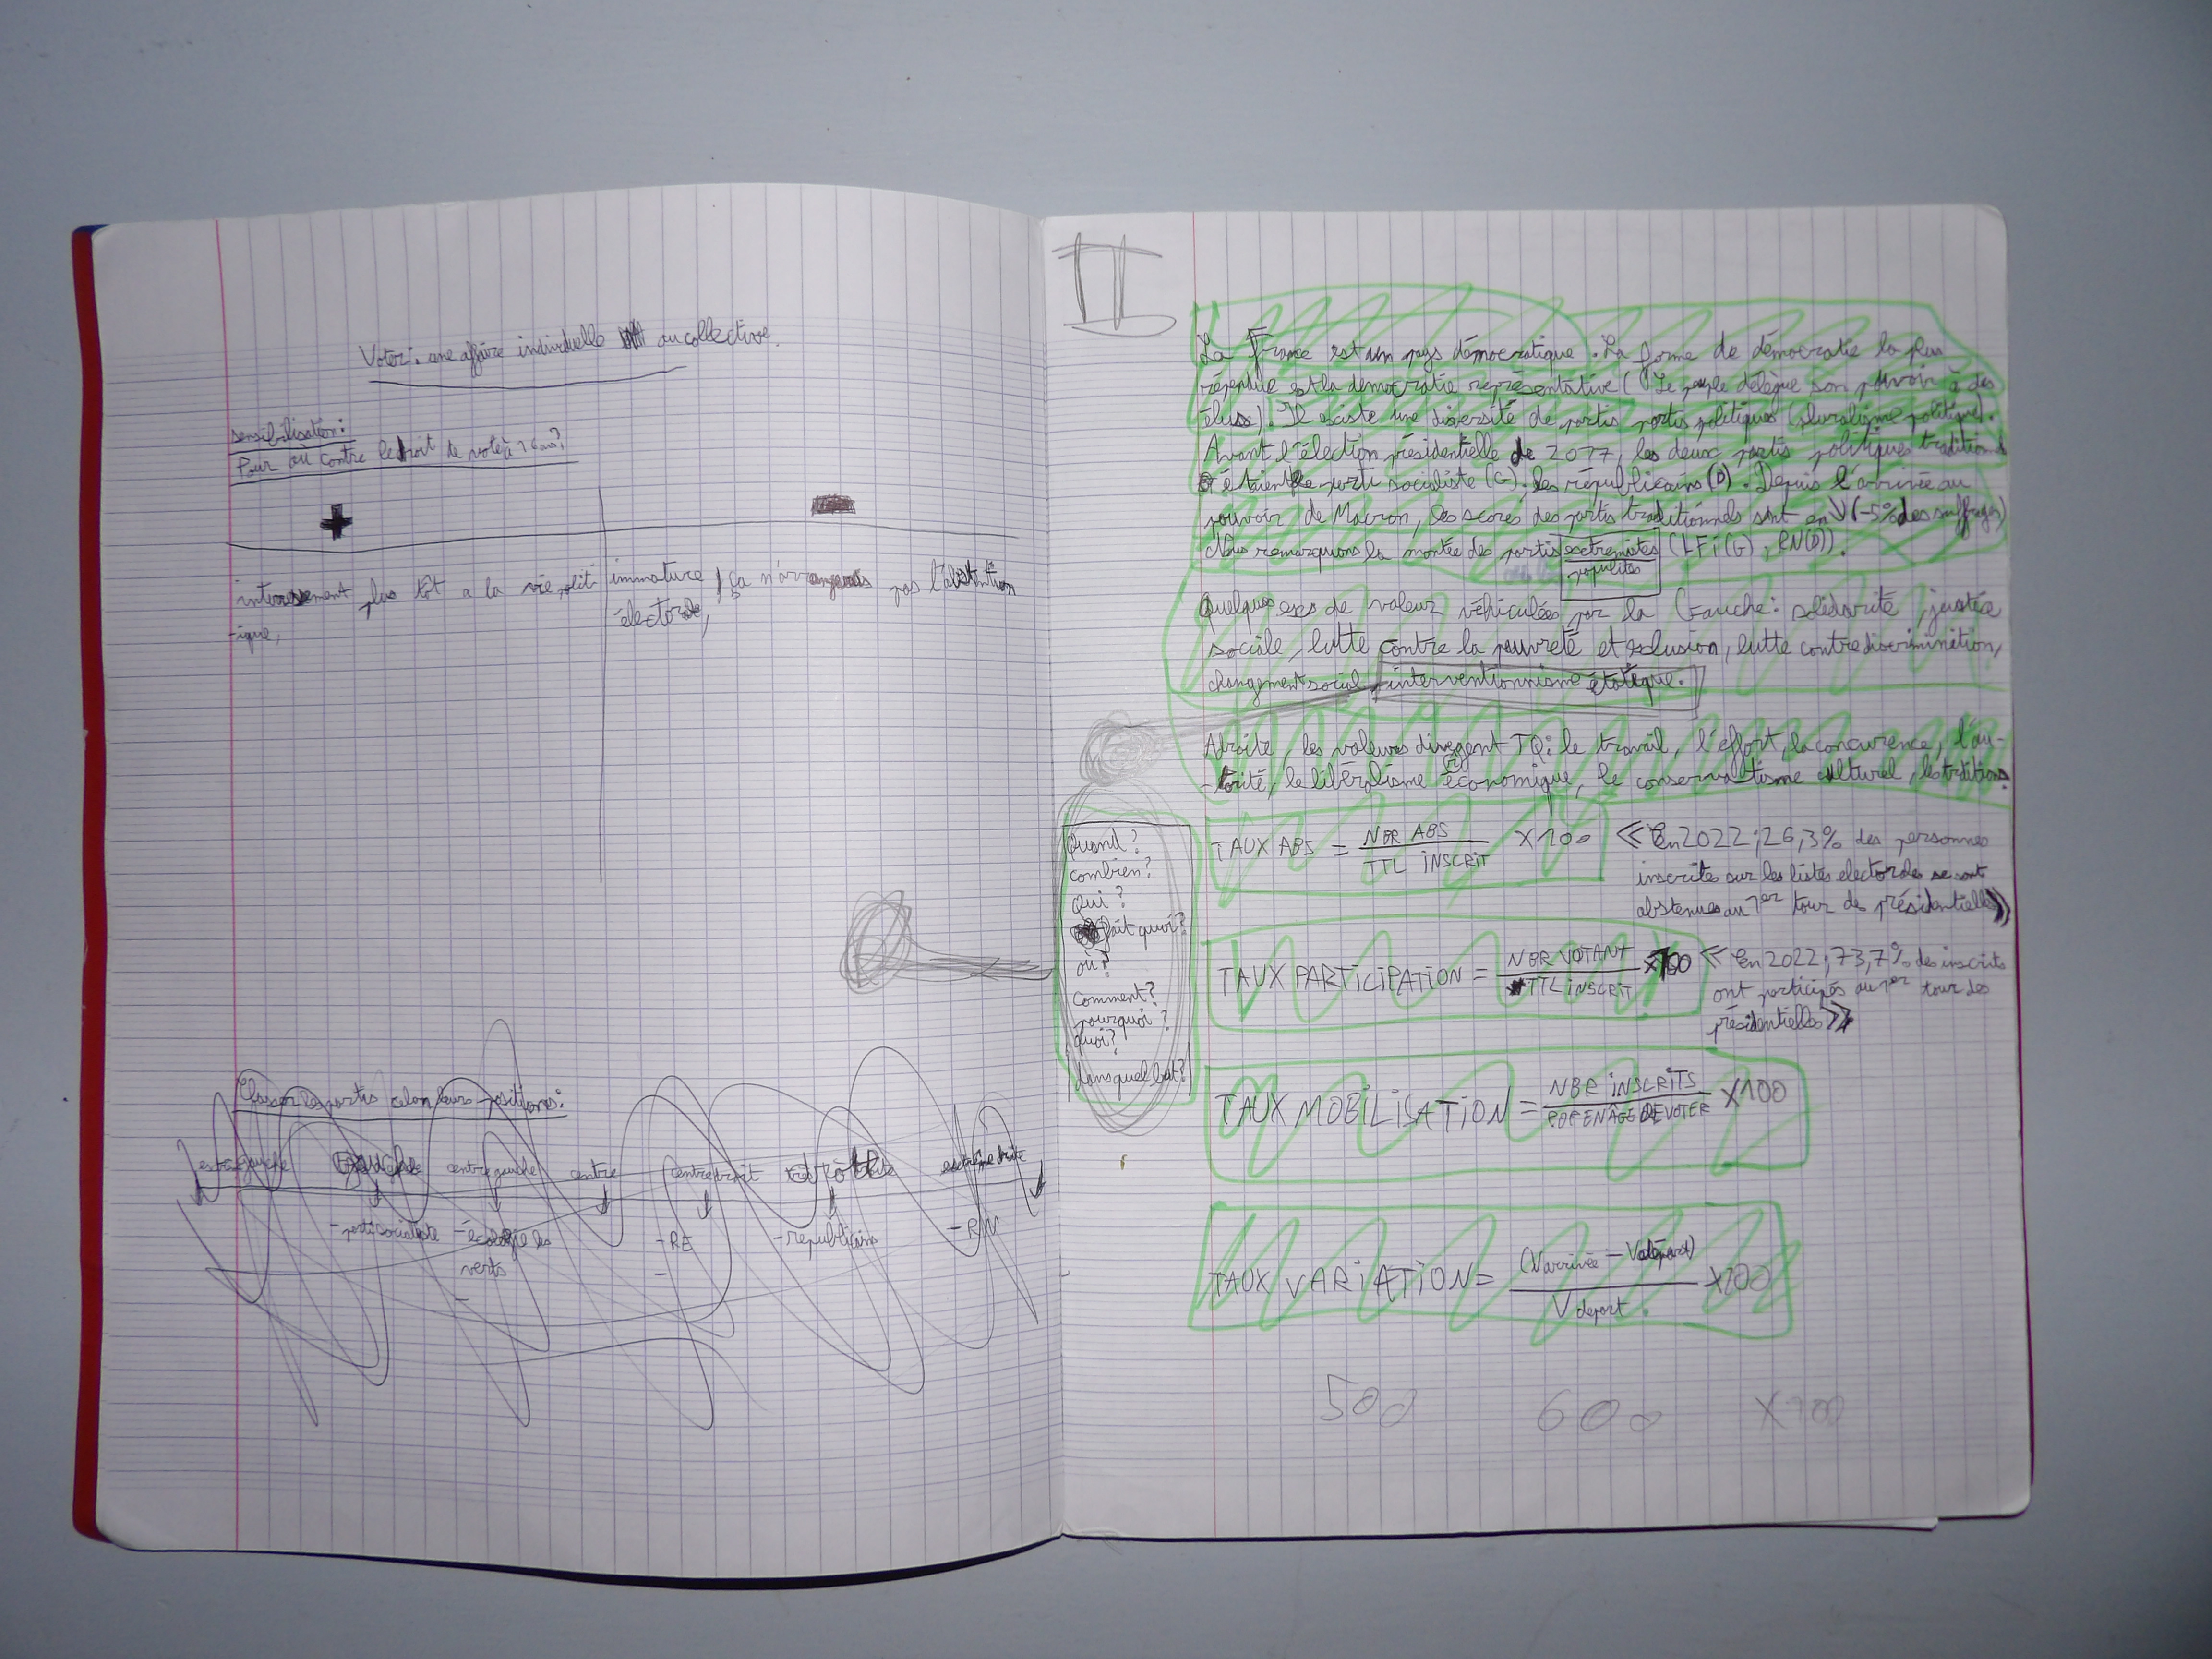 Voter: une affaire individuelle ou collective.
sensibilisation:
Pour où contre le droit de vote à 16 ans?
+
-
interessement plus tôt a la vie polit
-ique,
immature, ça n'arrangerais pas l'abstention
électorale,
Classer les partis selon leurs positions:
centre gauche centre centre droit extrême droite
- parti socialiste
- écologie les
verts
-
- RE
-
- republicains
- RN
II
La France est un pays démocratique. La forme de démocratie la plus
répendue est la democratie représentative (Le peuple délègue son pouvoir à des
élus). Il existe une diversité de partis partis politiques (pluralisme politique).
Avant l'élection présidentielle de 2017, les deux partis politiques traditionnels
étaient le parti socialiste (G), les républicains (D). Depuis l'arrivée au
pouvoir de Macron, les scores des partis traditionnels sont en ↘ (-5% des suffrages)
Nous remarquons la montée des partis extremistes (LFi(G), RN(D)).
populites
Quelques exs de valeur véhiculées par la Gauche: solidarité, justice
sociale, lutte contre la pauvreté et exlusion, lutte contre discriminition,
changement social, interventionnisme étatique.
A droite, les valeurs divergent TQ: le travail, l'effort, la concurence, l'au-
-torité, le libéralisme économique, le conservatisme culturel, les traditions.
Quand?
combien?
Qui?
fait quoi?
où?
Comment?
pourquoi?
quoi?
dans quel but?
TAUX ABS = NBR ABS / TTL iNSCRiT X100
« En 2022, 26,3% des personnes
inscrites sur les listes electorales se sont
abstenues au 1er tour des présidentielles »
TAUX PARTiCiPATiON = NBR VOTANT / TTL iNSCRiT X100
« En 2022, 73,7% des inscrits
ont participés au 1er tour des
présidentielles »
TAUX MOBiLiSATiON = NBR iNSCRiTS / POP EN ÂGE DE VOTER X100
TAUX VARiATiON = (V arrivée - V départ) / V depart. X100
500 600 X100